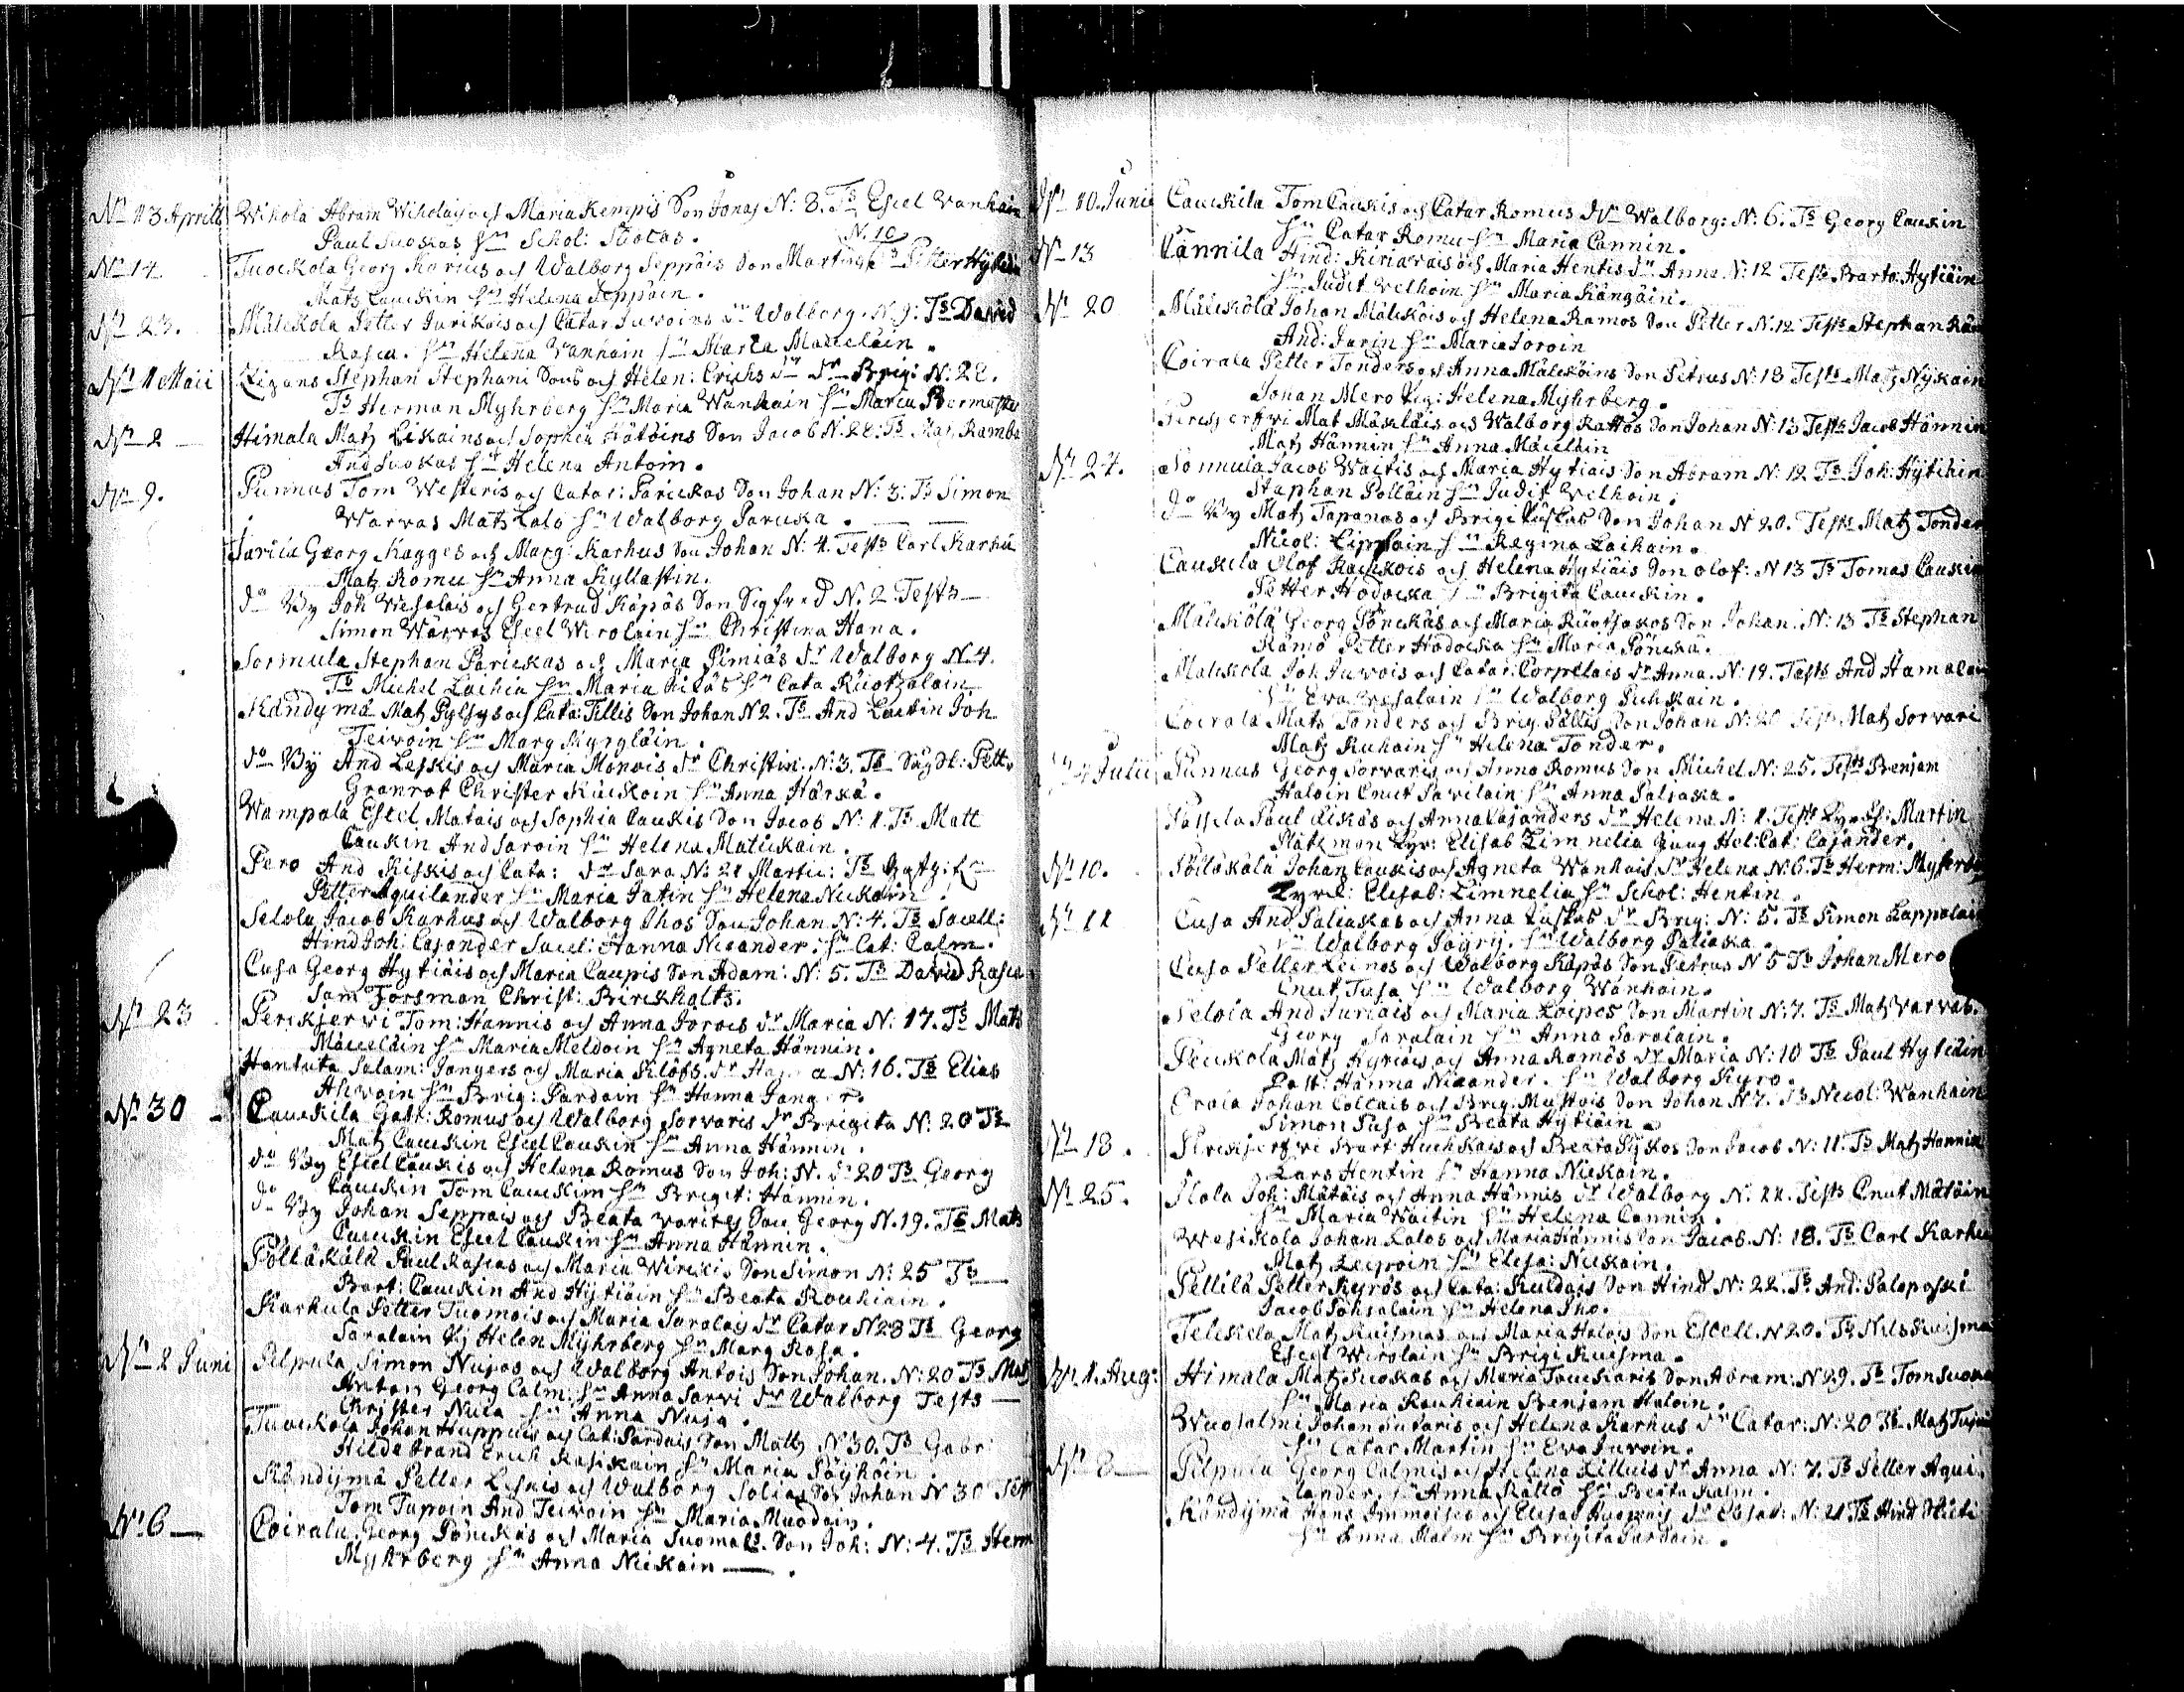 Nr 13 Aprill Wihola Abram Wiholais och Maria Kempis Son Jonas N: 8. Ts Escel Wanhain
Paul Suokas hu Schol: Stolas.
N. 10
Nr 14 Tuockola Georg Karius och Walborg Seppäis Son Martinus Ts Petter Hytiäin
Matz Cauckin hu Helena Seppäin.
Nr 23. Mälckölä Petter Jurikais och Catar Juvoins dr Walborg. N. 9: Ts David
Rasia. hu Helena Wanhain hu Maria Mälleläin.
Nr 1 Maii Zigens Stephan Stephani Sons och Helen: Erichs dr dr Brigi N: 28.
Ts Herman Myhrberg hu Maria Wanhain hu Maria Bermester
Nr 2 Himala Matz Likains och Sophia Hätöins Son Jacob N. 28: Ts Matz Ramba
And Suokas hu Helena Antoin.
Nr 9. Punnus Tom Westeris och Catar: Parickas Son Johan N: 3: Ts Simon
Warvas Matz Lalo hu Walborg Paruka.
Jaricla Georg Kagges och Marg: Karhus Son Johan N: 4. Tests Carl Karhu
Matz Romu hu Anna Kyllästin.
do By Joh Wesalais och Gertrud Käpäs Son Sigfred N. 2. Tests
Simon Wärvas Escel Wirolain hu Christina Hana.
Sormula Stephan Parickas och Maria Pimiäs dr Walborg N. 4.
Ts Michel Laihia hu Maria Kiläs hu Cata Ruotzalain
Kändymä Matz Pylsys och Cata: Tillis Son Johan N 2. Ts And Lastin Joh
Teivoin hu Marg Myrgläin.
do By And Leskis och Maria Monois dr Christin. N: 3. Ts Sugdl: Pett.
Granrot Christer Kuckoin hu Anna Härkä.
Wampala Escel Matais och Sophia Caukis Son Jacob N: 1. Ts Matt
Caukin And Saroin hu Helena Matickain.
Pero And Kiskis och Cata: dr Sara N: 28 Martii: Ts
Petter Aquilander hu Maria Jatin hu Helena Nickain.
Selola Jacob Karhus och Walborg Ihos Son Johan N: 4. Ts Sacell:
Hind Joh: Cajander Sacel: Hanna Nicander: hu Cat: Calm.
Cusa Georg Hytiäis och Maria Caupis Son Adam: N: 5. Ts David Rasia
Sam Forsman Christ: Birckholts.
Nr 23 Perckjervi Tom: Hannis och Anna Jorois dr Maria N: 17. Ts Mats
Mälleläin hu Maria Meldoin hu Agneta Hännin.
Hantula Salam: Jangers och Maria Kilöfs dr N: 16. Ts Elias
Ahvoin hu Brig: Pardain hu Hanna Janger
Nr 30 Cauckila Gabr: Romus och Walborg Sorvaris dr Brigita N: 20 Ts
Matz Cauckin Escel Caukin hu Anna Hännin.
do By Escel Caukis och Helena Romus Son Joh: N. 20 Ts Georg
Cauckin Tom Cauckim hu Brigit: Hannin.
do By Johan Seppäis och Beata Varites Son Georg N. 19. Ts Mats
Cauckin Escel Cauckin hu Anna Hännin.
Pölläkälä Paul Rasias och Maria Wirckis Son Simon N: 25 Ts
Bart: Cauckin And Hytiäin hu Beata Rouhiain.
Karkula Petter Tuomois och Maria Saralas dr Catar N 28 Ts Georg
Saralain Vg Helen Myhrberg hu Marg Rosa.
Nr 2 Juni Pilpula Simon Nujas och Walborg Antois Son Johan. N: 20 Ts Matz
Anton Georg Calm: hu Anna Sarvi dr Walborg Tests
Christer Nuia hu Anna Nuja.
Tuockola Johan Huppuis och Cat: Pardais Son Matts N 30. Ts Gabr
Hildebrand Erich Kasikain hu Maria Päyhöin.
Kändyjmä Petter Leskis och Walborg Solias Son Johan N 30 Test
Tom Tapoin And Teivoin hu Maria Muodoin.
Nr 6 Coirala Georg Pönckäs och Maria Suomals. Son Joh: N: 4. Ts Herm
Myhrberg hu Anna Nickain.
Nr 10. Junii Cauckila Tom Caukis och Catar Romus dr Walborg: N: 6. Ts Georg Caukin
hu Catar Romu hu Maria Cannin.
Nr 13 Cannila Hind: Kiriavais och Maria Hentis dr Anna N: 12 Tests Barto: Hytiäin
hu Judit Velhoin hu Maria Kangäin.
Nr 20 Mälckölä Johan Mälckäis och Helena Ramos Son Petter N. 12 Tests Stephan
And: Jurin hu Maria Soroin
Coirala Petter Tonders och Anna Mälckäins Son Petrus N: 18 Tests Matz Nykain
Johan Mero Vig: Helena Myhrberg.
Perckjerfwi Mat Mäskläis och Walborg Rattos Son Johan N: 13 Tests Jacob Hännin
Matz Hännin hu Anna Mälleläin
Nr 24. Sormula Jacob Waitis och Maria Hytiais Son Abram N: 12 Ts Joh: Hytiäin
Staphan Polläin hu Judit Velhoin.
do By Matz Tapanas och Brigi Son Johan N 20. Tests Matz Tonder
Nicol: Lippoin hu Regina Laihain.
Cauckila Olof Rauckois och Helena Hytiäis Son Olof: N 13 Ts Tomas Caukin
Petter Hodocka hu Brigita Cauckin.
Mälckölä Georg Pönckäs och Maria Ruotsakos Son Johan. N: 13 Ts Stephan
Rämö Petter Hodocka hu Maria Pöncka.
Mälckölä Joh Juvois och Catar: Corpelais dr Anna. N: 19. Tests And Hamalain
hu Eva Vesalain hu Walborg Puhkain.
Coirala Mats Tonders och Brig: Pällis Son Johan N: 20 Tests Matz Sorvari
Matz Ruhain hu Helena Tonder.
4 Julii Punnus Georg Sorvaris och Anna Romus Son Michel N: 25. Tests Benjam
Haloin Cnut Savilain hu Anna Paliaka.
Paul Aikäs och Anna Cajanders dr Helena N: 1. Tests Martin
Platzman Elisab Limnelia Jung Hel: Cat: Cajander.
Nr 10. Pölläkälä Johan Cauckis och Agneta Wanhais dr Helena N: 6. Ts Herm: Myhrberg
Elisab: Limnelia hu Schol: Hentin
Nr 11 Cusa And Paliakas och Anna dr Brig: N: 5. Ts Simon Lappalain
hu Walborg Päyry. hu Walborg Paliaka.
Cusa Petter Leinos och Walborg Käpäs Son Petrus N 5 Ts Johan Mero
Cnut Tusa hu Walborg Wänhain.
Selola And Juriais och Maria Loipos Son Martin N: 7. Ts Matz Varvas.
Georg Saralain hu Anna Saralain.
Peukola Matz Hyriäis och Anna Romos dr Maria N: 10 Ts Paul Hytiäin
Past: Hanna Nicander. hu Walborg Kyro.
Erola Johan Collais och Brig: Mustois Son Johan N 7. Ts Nicol: Wanhain
Simon Pusa hu Beata Hytiäin
Nr 18. Perckjerfwi Bart Huchkais och Beata Sykos Son Jacob N: 11. Ts Matz Hannin
Lars Hentin hu Hanna Nickain.
Nr 25. Ilola Joh: Mätäis och Anna Hännis dr Walborg N: 22. Tests Cnut Mätäin
hu Maria Waitin hu Helena Cannin.
Wesikola Johan Lalos och Maria Hännis Son Jacob. N: 18. Ts Carl Karhu
Matz Leipoin hu Elisa: Nickain.
Pellilä Petter Kyrös och Cata: Kuldais Son Hind N: 22. Ts And: Paloposki
Jacob Pohsalain hu Helena Iho.
Telckela Matz Ruismas och Maria Halois Son Escell. N 20. Ts Nils Ruisma
Escel Wirolain hu Brigi Ruisma.
Nr 1. Aug: Himala Matz Suokas och Maria Touckaris Son Abram: N 29. Ts Tom Suokas
hu Maria Rauhiain Benjam Haloin.
Wuosalmi Johan Sutaris och Helena Karhus dr Catar: N: 20 Ts Matz
hu Catar Martin hu Eva Juvoin.
Nr 8 Pilpula Georg Calmis och Helena Lilluis dr Anna N: 7. Ts Petter Aqui
lander. hu Anna Rätto hu Beata Kalm.
Kändyjmä Hans Immoises och Elisab dr Elisab: N: 21 Ts Hind
hu Anna Malm hu Brigita Pardain.